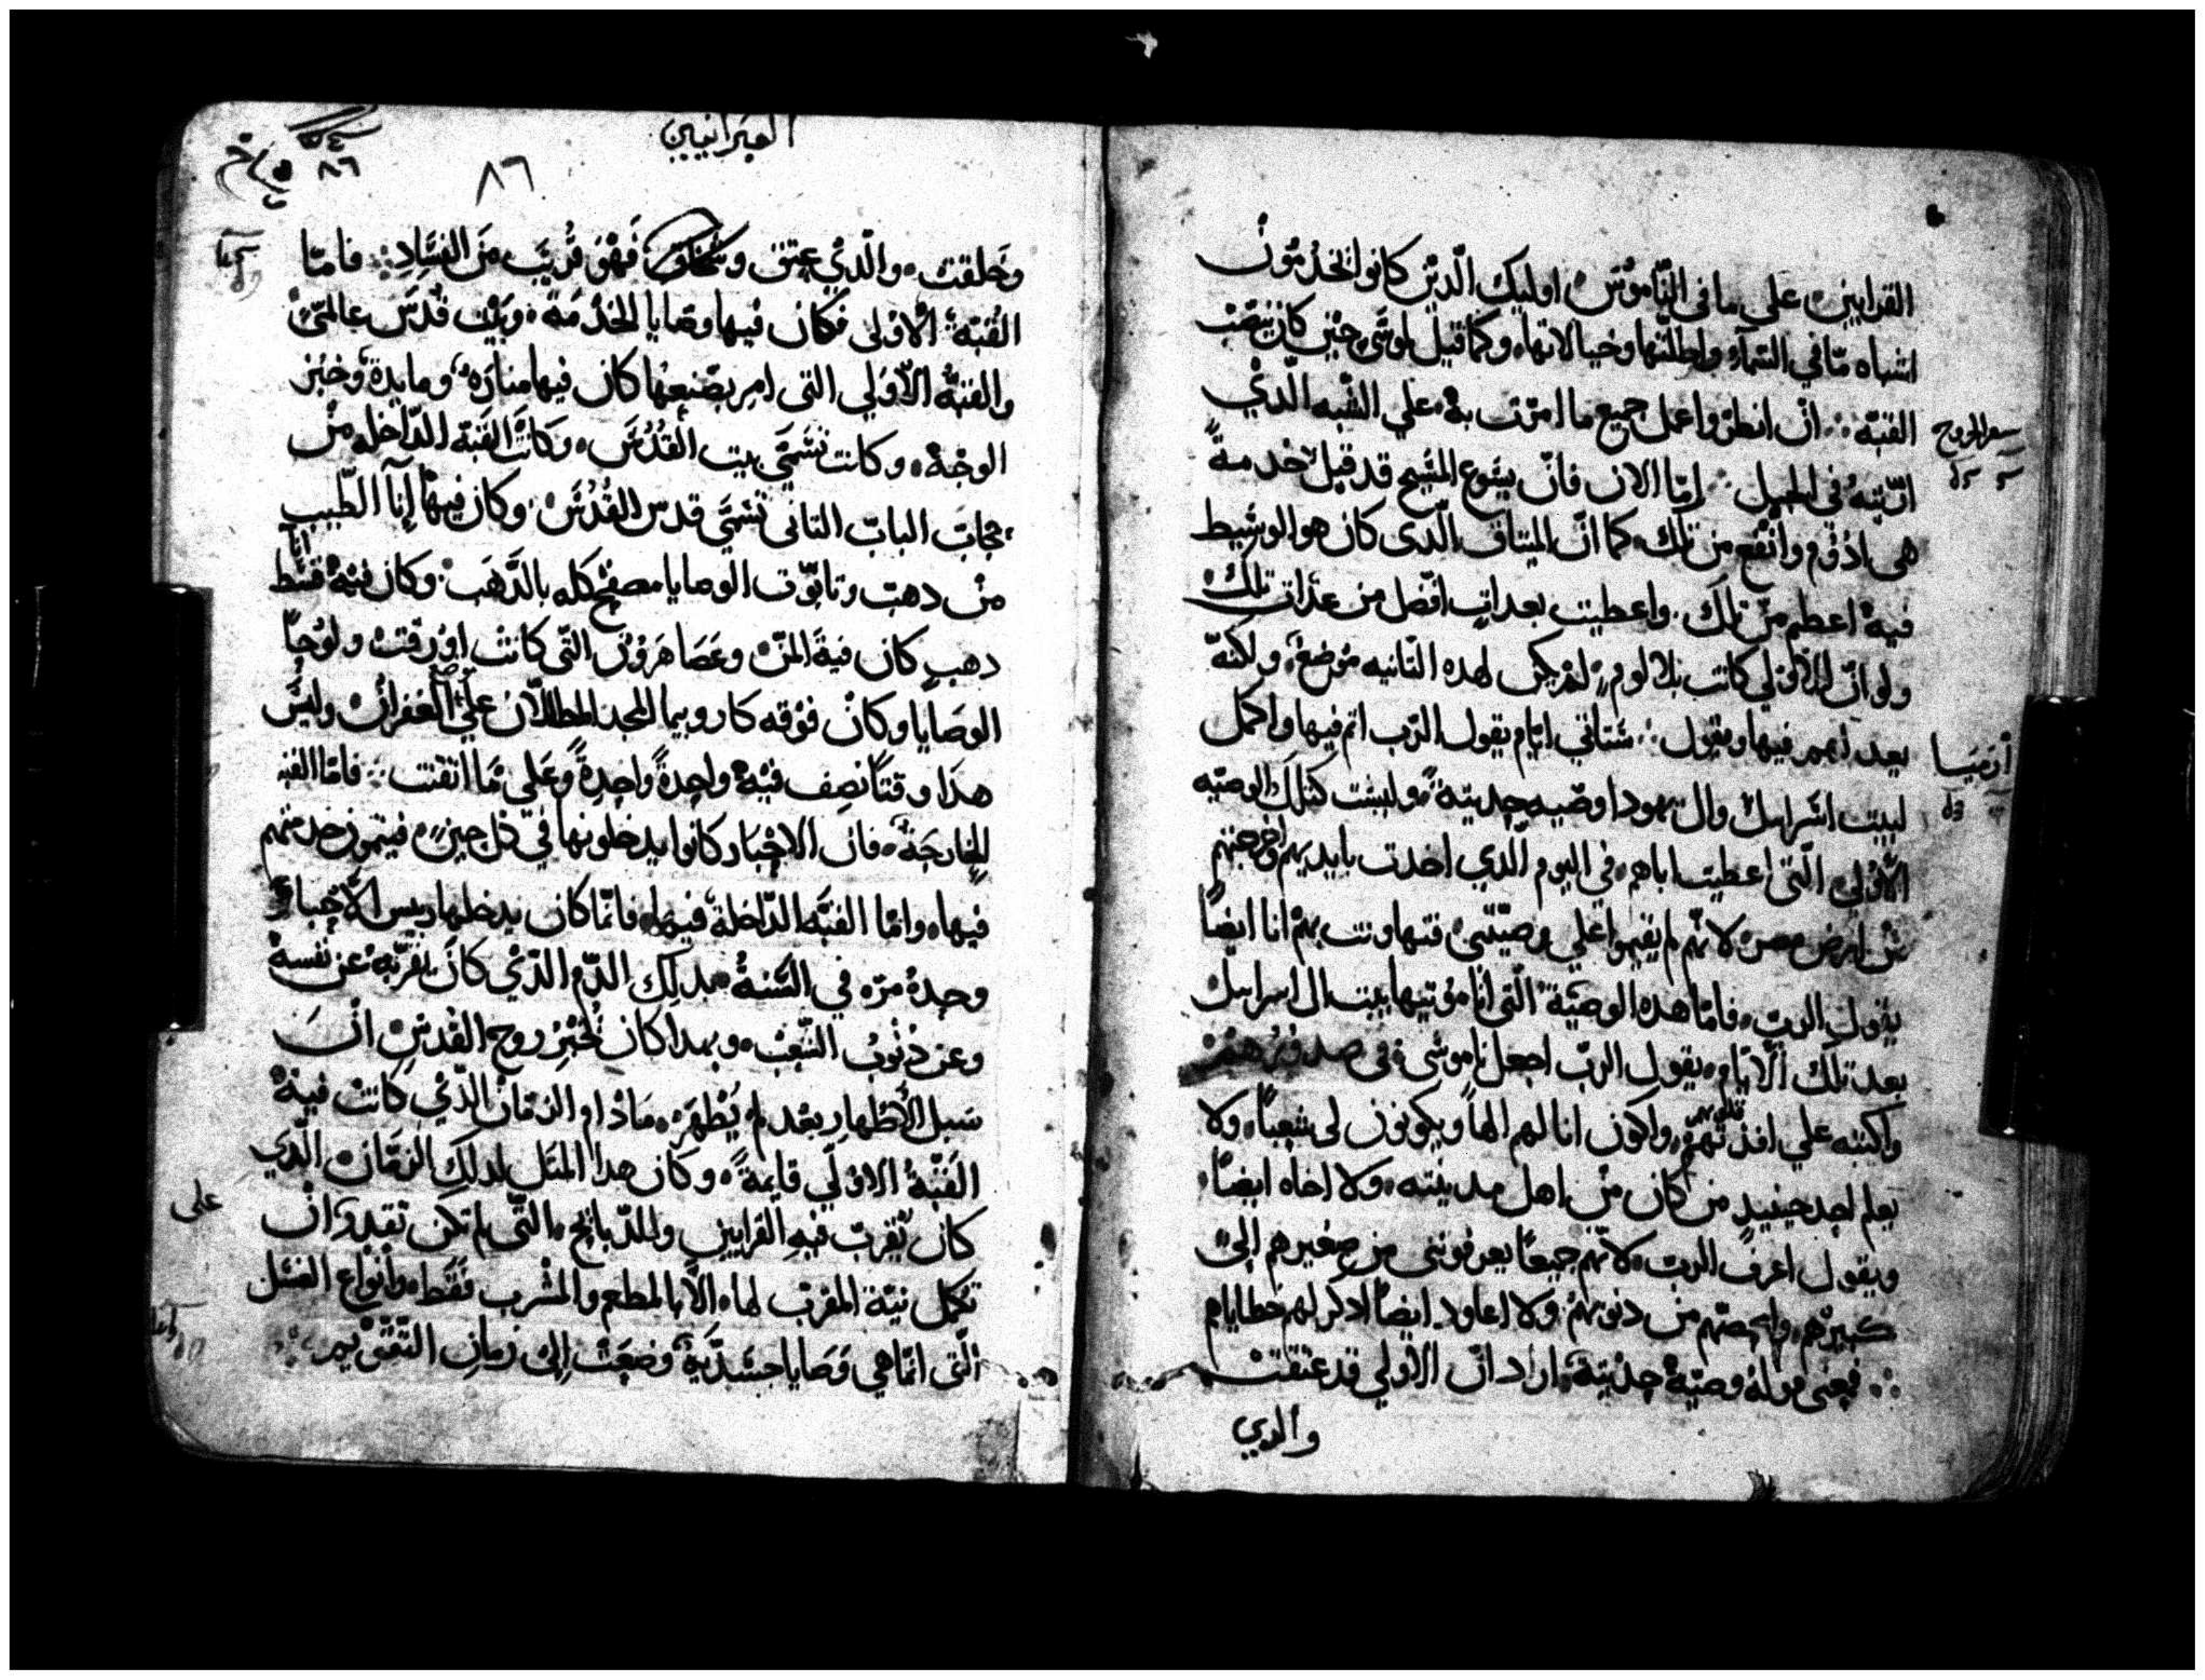 القرابين على ما في النّاموس اوليك الّدين كانوا يخدمون
اشباه مّا في السّماء واظلّتها وخيالاتها وكما قيل لموسَى حين كان ينصب
القبّة ان انظر واعمل جميع ما امرت به علي الشبه الّدي
اريته في الجبل امّا الان فانّ يسوع المسيح قد قبل خدمةً
هى ادوم وانفع من تلك كما انّ الميتاق الّدى كان هو الوسيط
فيه اعظم من تلك واعطيت بعداتٍ افضل من عدات تلك
ولو انّ الاولي كانت بلا لومٍ لم يكن لهده التانيه موضع ولكنّه
يعد فيها ويقول ستاتي ايّام يقول الرّب اتم فيها واكمل
لبيت اسرايل وال يهودا وصّيه جديتة وليست كتلك الوصّيه
الاولى الّتى اعطيت اباهم في اليوم الّدي اخدت بايديهم واخرجتهم
من ارض مصر لانّهم لم يقيموا علي وصيّتي فتهاونت بهم انا ايضاً
يقول الربّ فامّا هده الوصيّة الّتى انا موتيها بيت ال اسرايل
بعد تلك الايّام يقول الربّ اجعل ناموسي في صدورهم
واكتبه علي افدتهم قلوبهم واكون انا لهم الهاً ويكونون لى شعباً ولا
يعلم احد حينيدٍ من كان من اهل مدينته ولا اخاه ايضاً
ويقول اعرف الربّ لانّهم جميعاً يعرفونني من صغيرهم الى
كبيرهم وامحصهم من دنوبهم ولا اعاود ايضاً ادكر لهم خطاياهم
فمعنى قوله وصيّة جديتة اراد انّ الاولي قد عتقت
والدي
سفر الخروج
أرَميَا
العبرانيين
٨٦
٨٦
وخلقت والّدي عتق وشاخ فهو قريب من الفساد فامّا
القبّة الاولى فكان فيها وصايا الخدمة وبيت قدس عالمىّ
والقبّة الاولي التى امر بصنعها كان فيها مناره ومايدة وخبز
الوجه وكانت تسمّي بيت القُدُس وكانت القبة الدّاخله من
حجاب الباب التانى تسمّي قدس القُدُس وكان فيها إنآ الطّيب
من دهب وتابوت الوصايا مصفح كله بالدّهَب وكان فيه قسط
دهبٍ كان فيه المنّ وعَصَا هَرُون الّتى كانت اورقت ولوحا
الوصايا وكان فوقه كاروبيما المجد المظللان علي الغفران وليس
هذا وقتاً نصف فيه واحدةً واحدةً وعلي مَا اتقنت فامّا القبه
الخارجة فان الاحبار كانوا يدخلونها في كل حين فيتمون خدمتهم
فيها وامّا القبّه الدّاخلة فيها فانّما كان يدخلها رييس الاحبار
وحده مرّه في السّنة بدلك الدّم الّدي كان يقرّبه عن نفسه
وعن دنوب الشعب وبهدا كان يُخبِر روح القدس انّ
سبل الأطهار بعد لم يُظهَره مادام الزمان الّدي كانت فيه
القبّة الاولّي قايمةً وكان هدا المتل لدلك الزمان الّدي
كان يقرب فيهِ القرابين والدّبايح الّتى لم تكن تقدر ان
تكمل نيّة المقرّب لها الّا بالمطعم والمشرب فقط وانواع الغسل
الّتى انّما هي وصايا جسدّية وضعت إلى زمان التّقويم
على